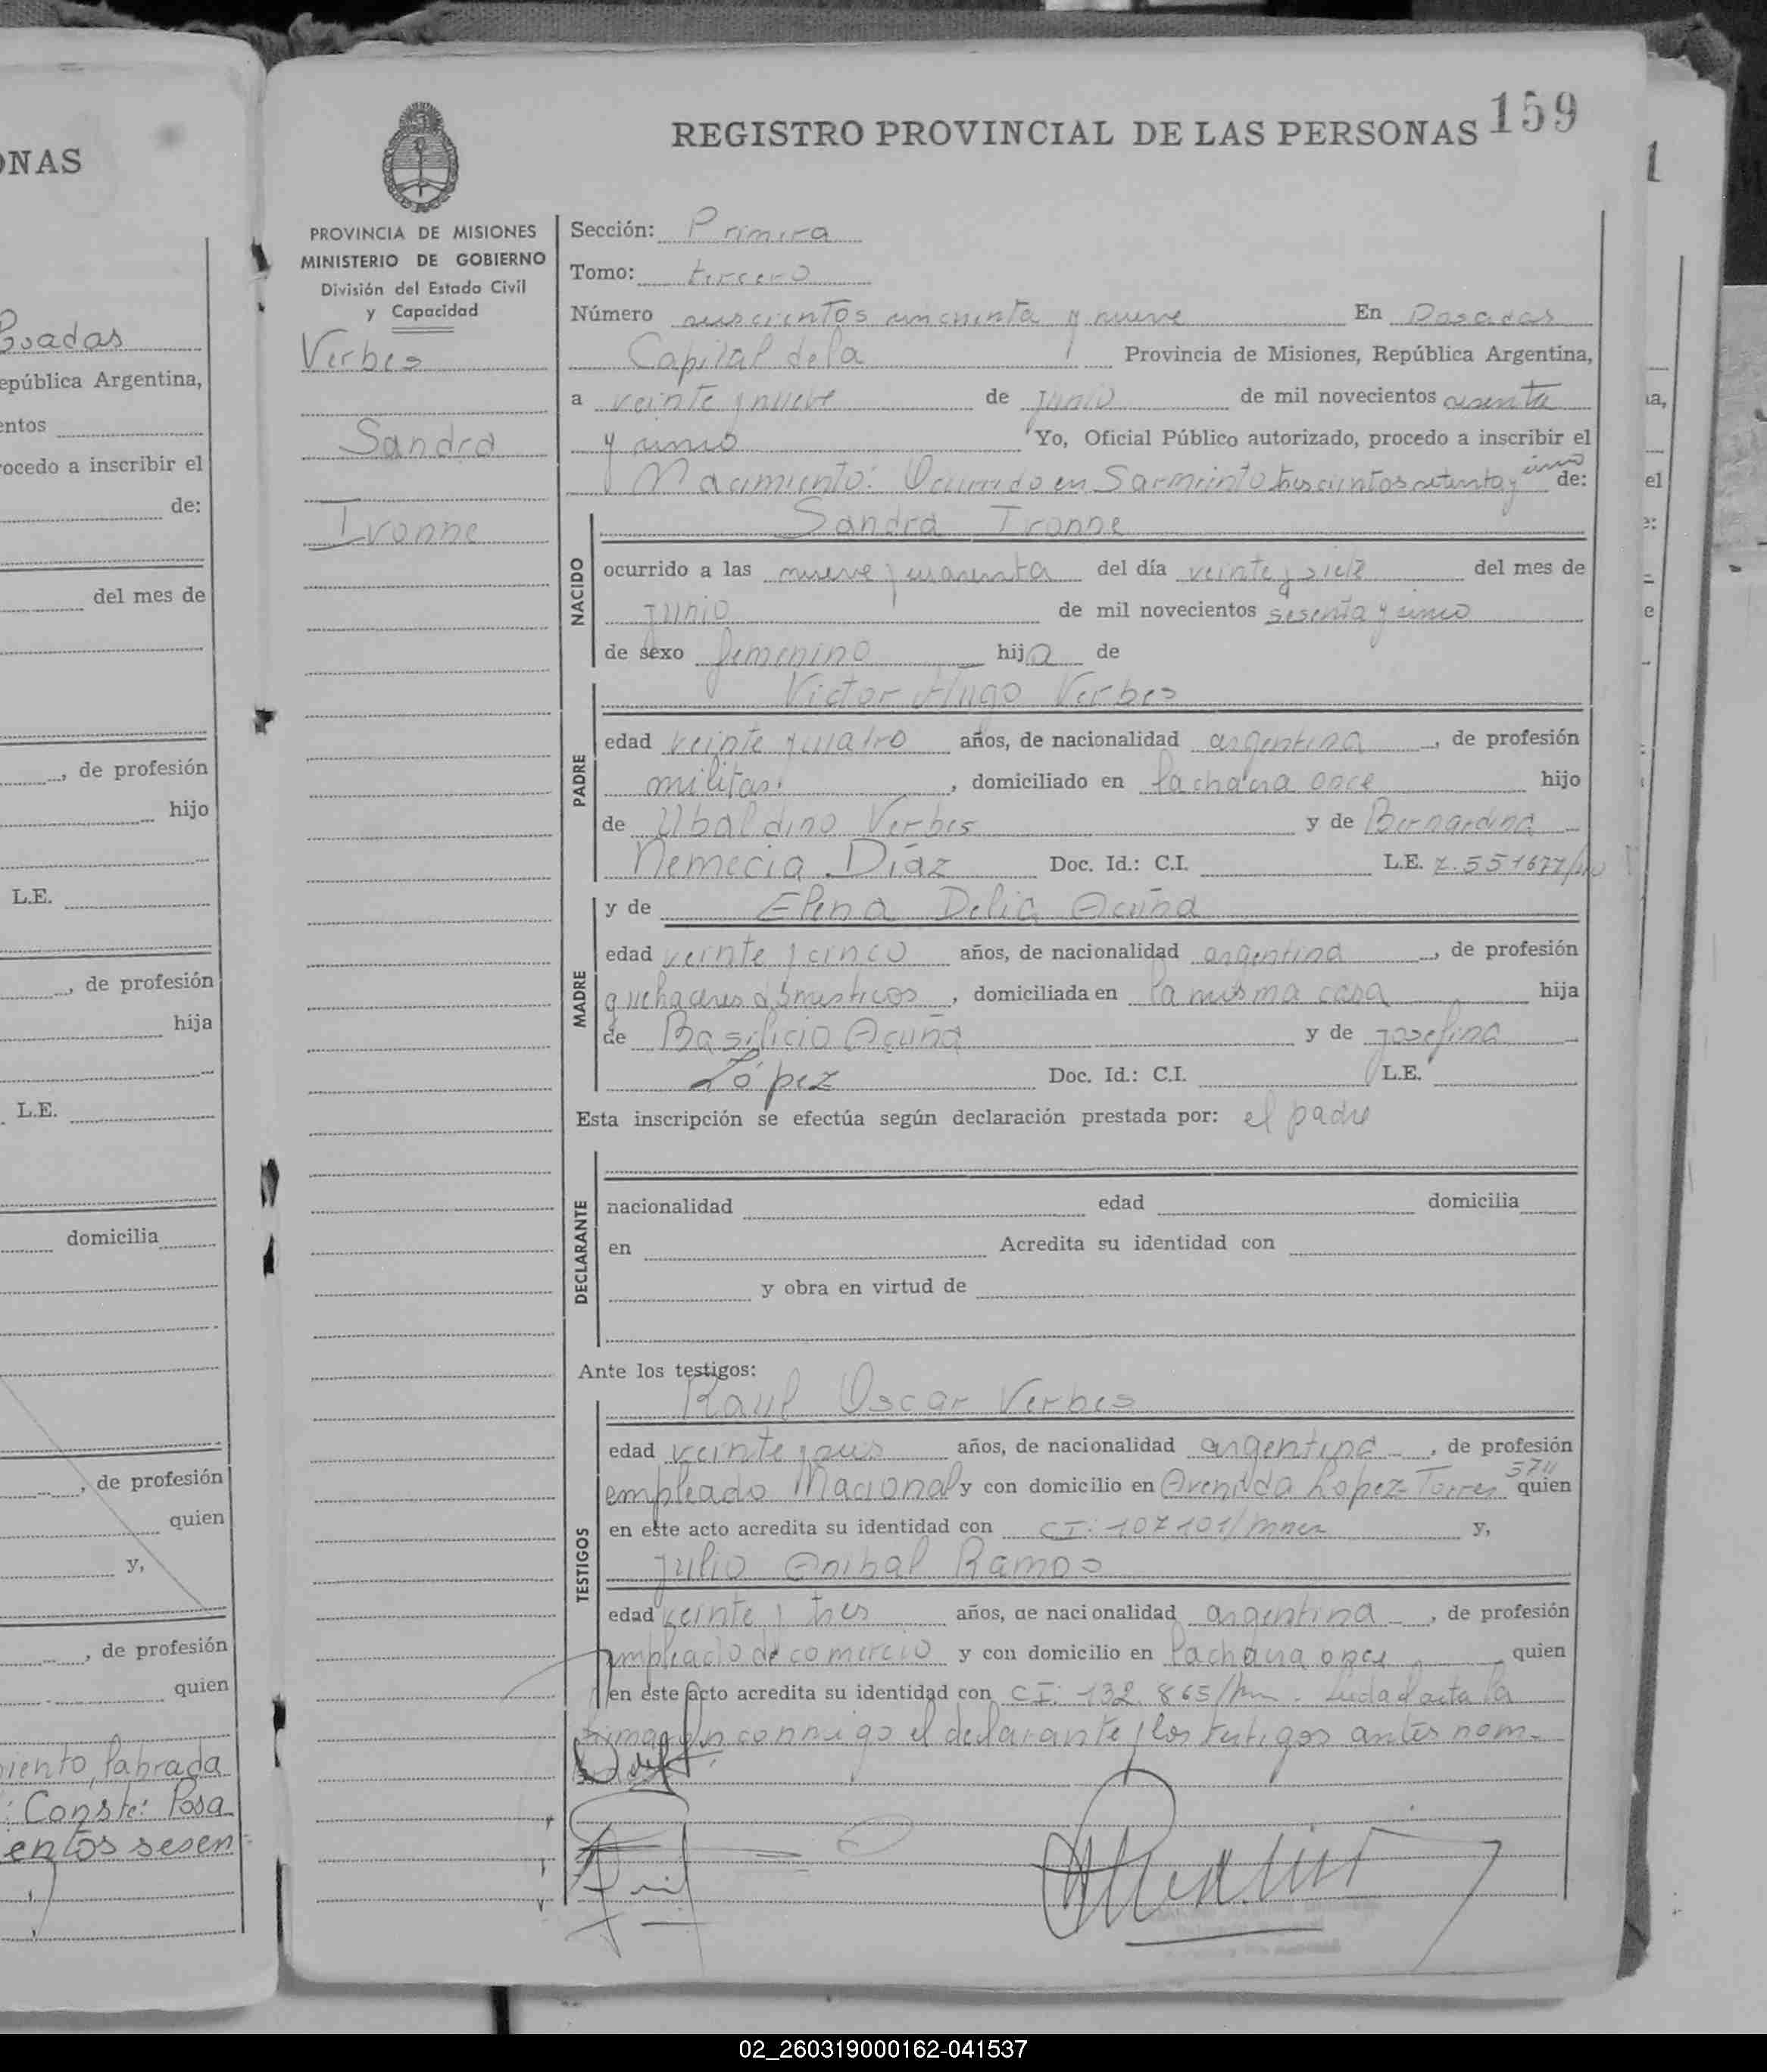 ONAS
Posadas
epública Argentina,
entos
ocedo a inscribir el
de:
del mes de
, de profesión
hijo
L.E.
, de profesión
hija
L.E.
domicilia
, de profesión
quien
y,
, de profesión
quien
miento, labrada
: Conste: Posa
entos sesen
REGISTRO PROVINCIAL DE LAS PERSONAS 159
PROVINCIA DE MISIONES
MINISTERIO DE GOBIERNO
División del Estado Civil
y Capacidad
Verbes
Sandra
Ivonne
Sección: Primera
Tomo: tercero
Número seiscientos cincuenta y nueve En Posadas
Capital de la Provincia de Misiones, República Argentina,
a veinte y nueve de junio de mil novecientos sesenta
y cinco Yo, Oficial Público autorizado, procedo a inscribir el
Nacimiento: Ocurrido en Sarmiento trescientos setenta y cinco de:
Sandra Ivonne
NACIDO
ocurrido a las nueve y cuarenta del día veinte y siete del mes de
junio de mil novecientos sesenta y cinco
de sexo femenino hija de
Victor Hugo Verbes
PADRE
edad veinte y cuatro años, de nacionalidad argentina, de profesión
militar, domiciliado en la chacra once hijo
de Ubaldino Verbes y de Bernardina
Nemecia Díaz Doc. Id.: C.I. L.E. 7.551677
MADRE
y de Elena Delia Acuña
edad veinte y cinco años, de nacionalidad argentina, de profesión
quehaceres domesticos, domiciliada en la misma casa hija
de Basilicio Acuña y de Josefina
López Doc. Id.: C.I. L.E.
Esta inscripción se efectúa según declaración prestada por: el padre
DECLARANTE
nacionalidad edad domicilia
en Acredita su identidad con
y obra en virtud de
Ante los testigos:
TESTIGOS
Raul Oscar Verbes
edad veinte y seis años, de nacionalidad argentina, de profesión
empleado Nacional y con domicilio en Avenida Lopez Torres 574 quien
en este acto acredita su identidad con CI: 107101/ y,
Julio Anibal Ramos
edad veinte y tres años, de nacionalidad argentina, de profesión
empleado de comercio y con domicilio en la chacra once quien
en este acto acredita su identidad con CI: 132.865/ Leida el acta la
firmaron conmigo el declarante y los testigos antes nom-
02_260319000162-041537